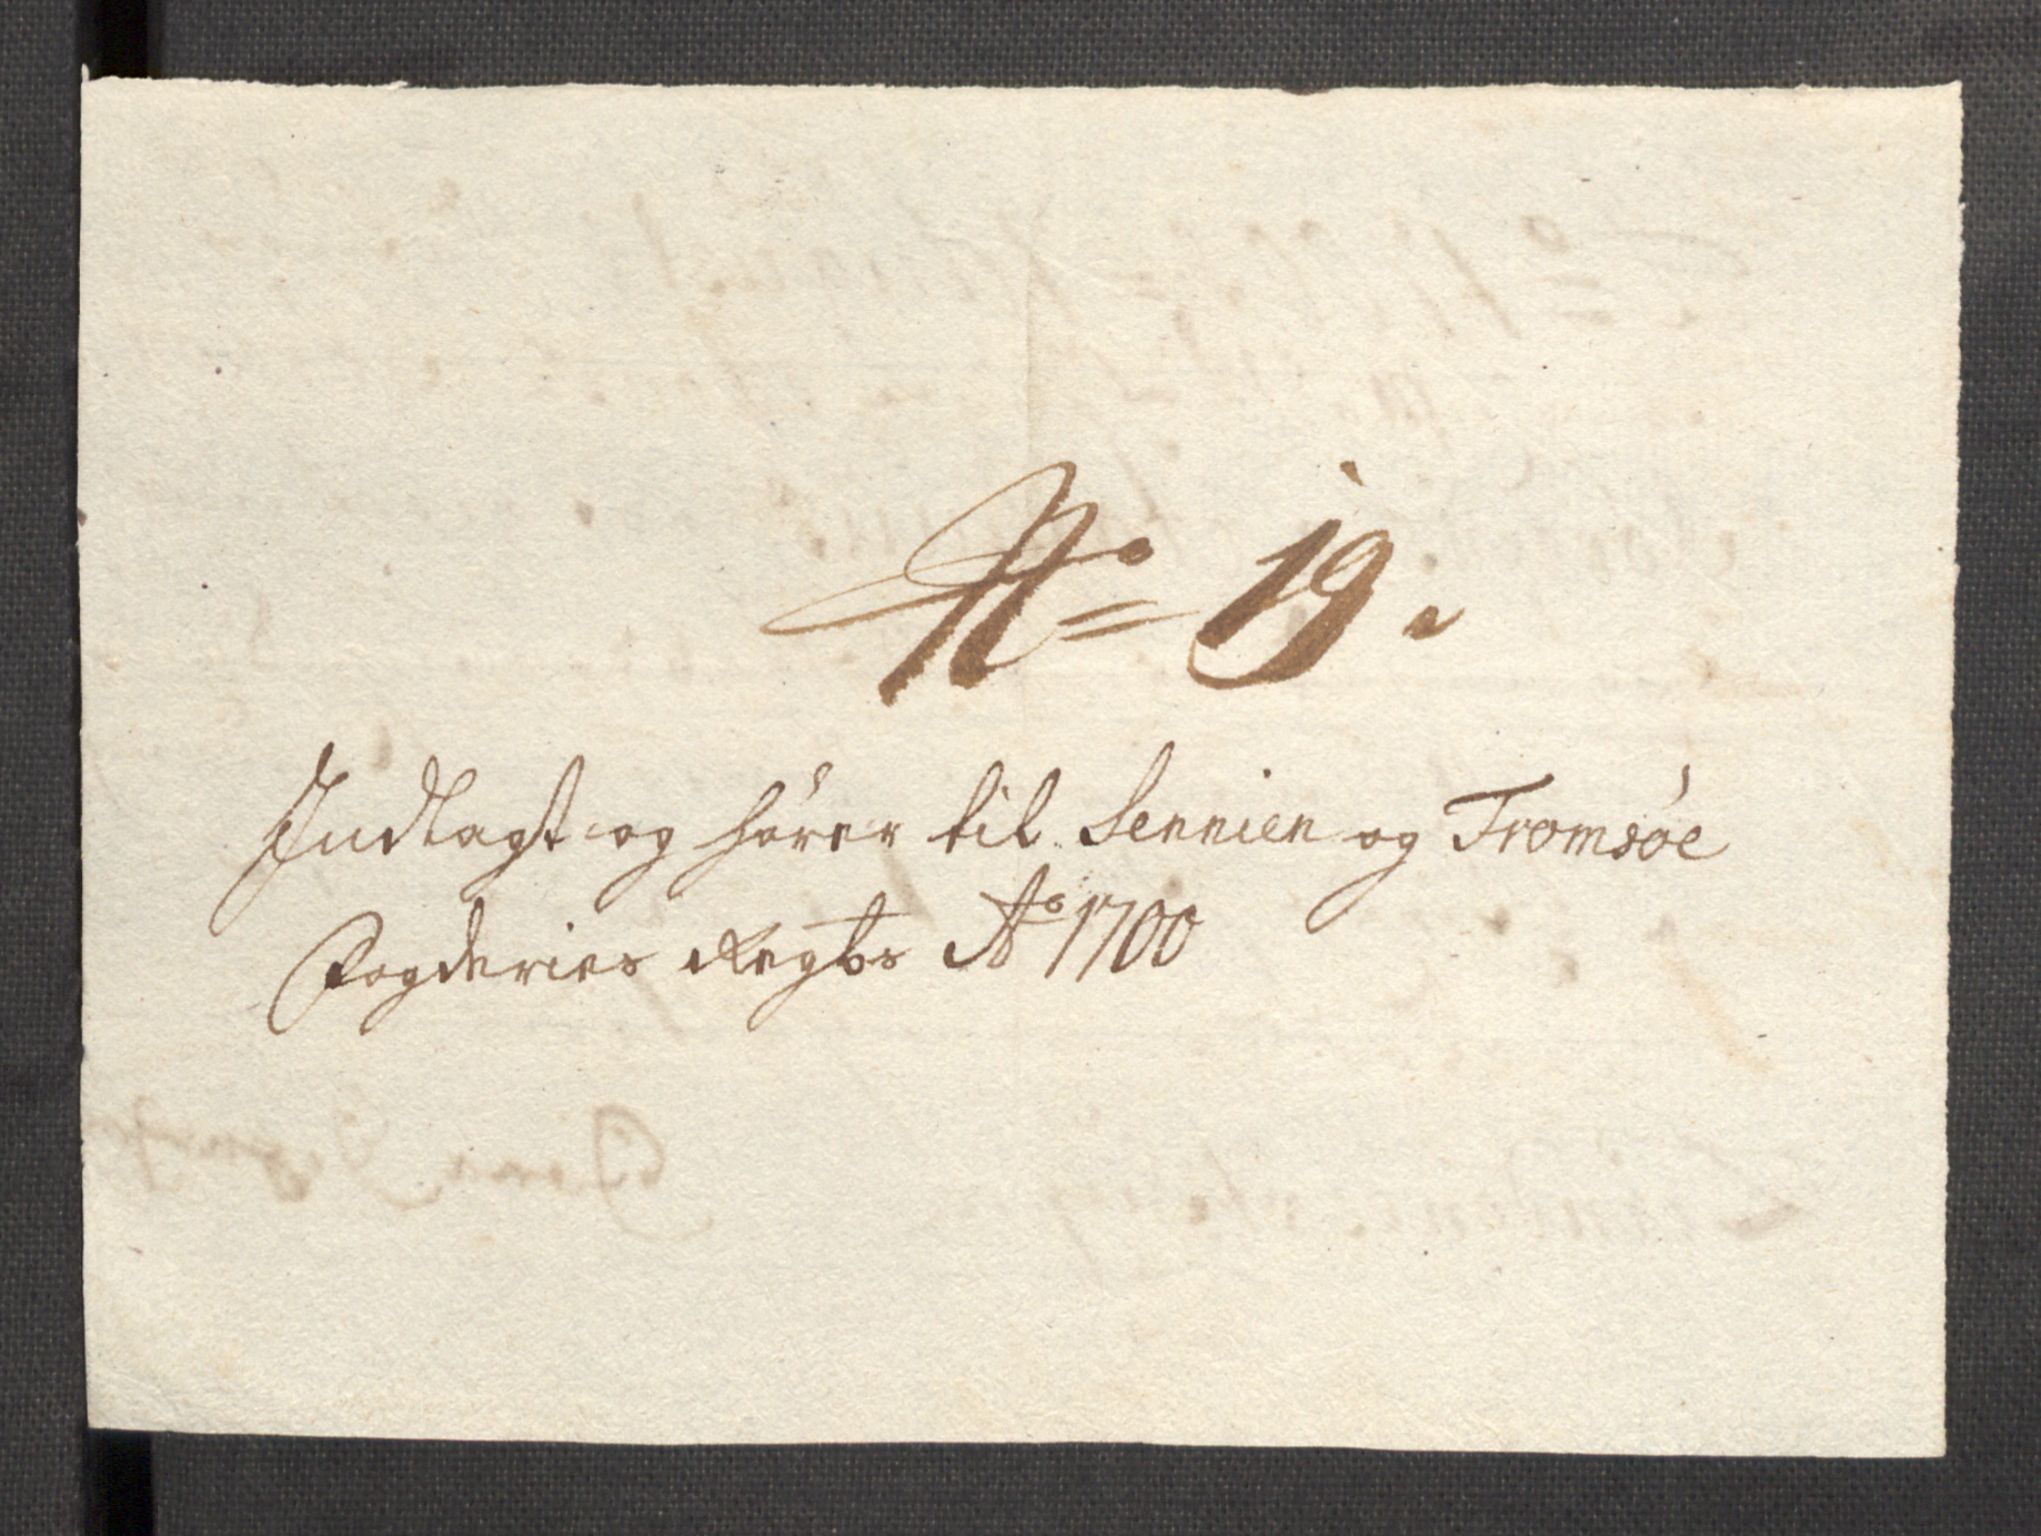 No 19.
Indlagt og hører til Sennien og Tromsøe
Fogderies Regbs Ao 1700